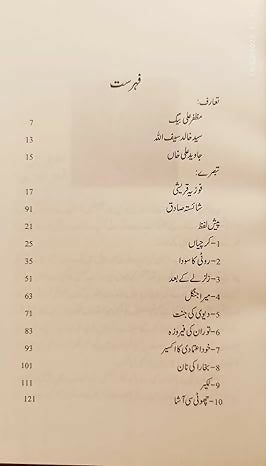 فہرست
تعارف:
مظفر علی بیگ 7
سید خالد سیف اللہ 13
جاوید علی خاں 15
تبصرے:
فوزیہ قریشی 17
شائستہ صادق 91
پیش لفظ 21
1- کرچیاں 25
2- روٹی کا سودا 35
3- زلزلے کے بعد 51
4- میرا جنگل 63
5- دیوی کی جنت 71
6- توران کی فیروزہ 83
7- خود اعتمادی کا اکسیر 93
8- بخارا کی نان 101
9- لکیر 111
10- چھوٹی سی آشا 121